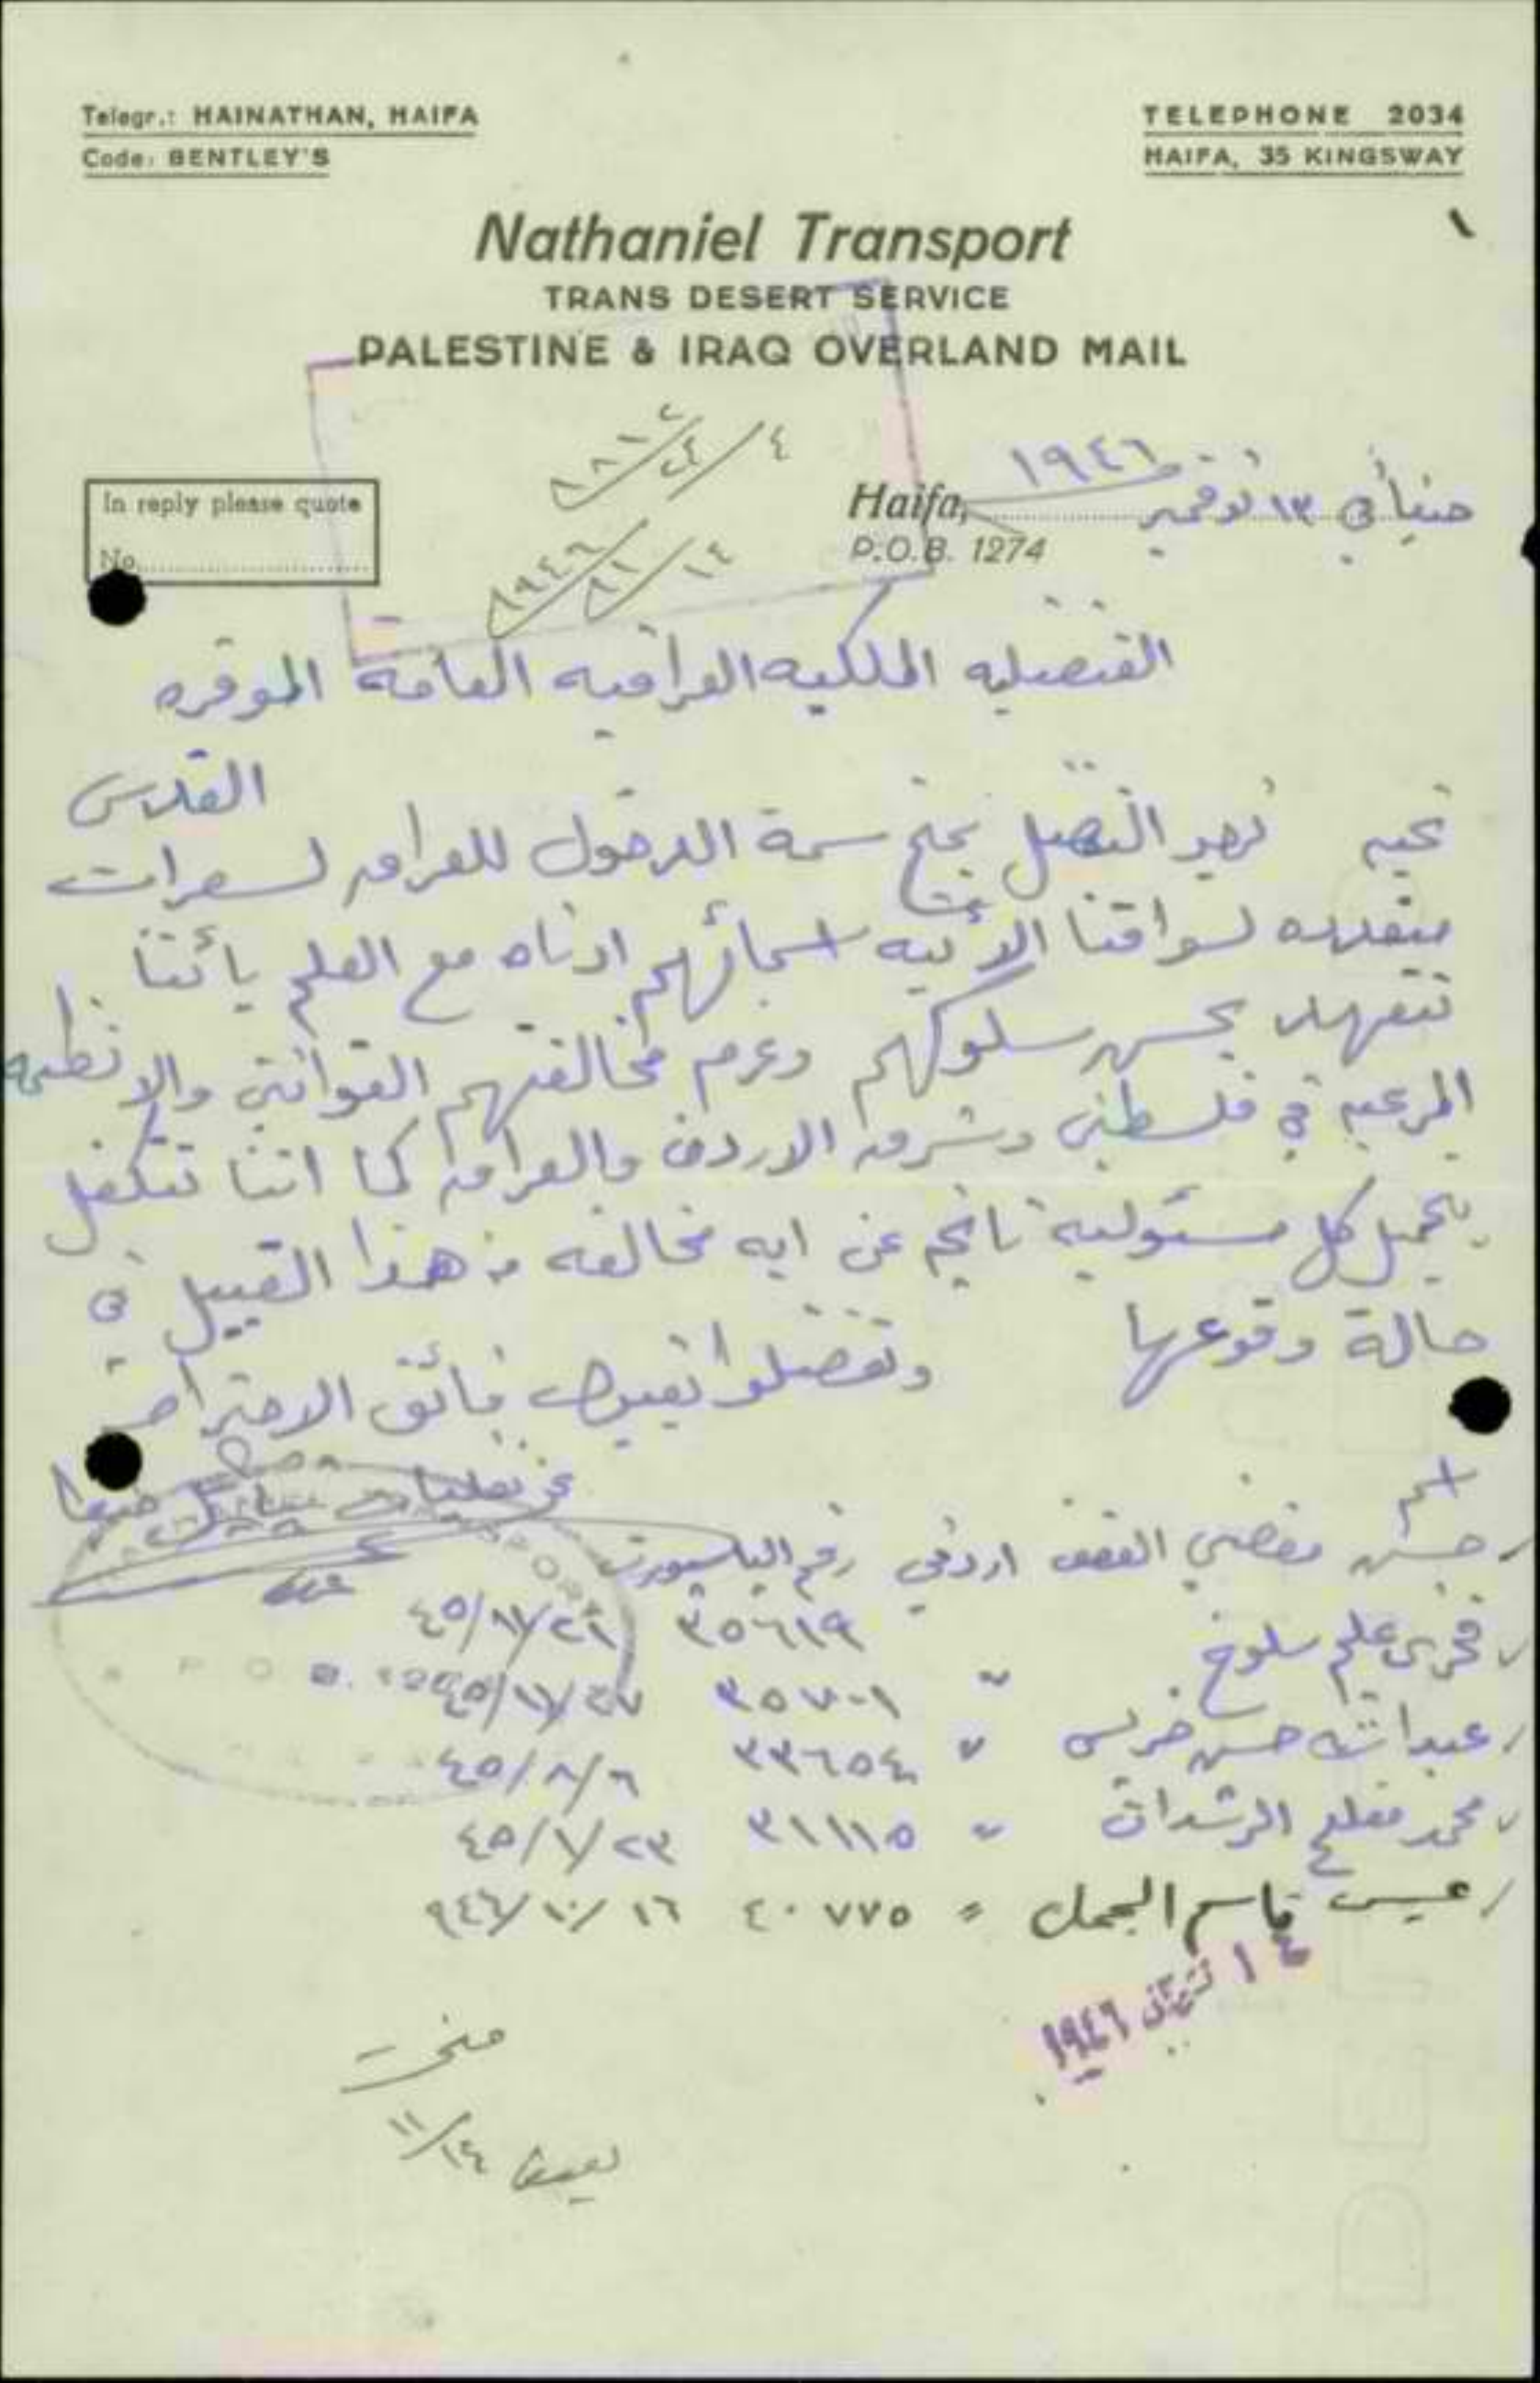 Telegr.: HAINATHAN, HAIFA
Code: BENTLEY'S
TELEPHONE 2034
HAIFA, 35 KINGSWAY
١
Nathaniel Transport
TRANS DESERT SERVICE
PALESTINE & IRAQ OVERLAND MAIL
In reply please quote
No.
٤/٢٤/
١٤/١١/١٩٤٦
Haifa, حيفا في ١٣ نوفمبر ١٩٤٦
P.O.B. 1274
القنصليه الملكيه العراقيه العامة الموقره
القدس
تحيه نرجو التفضل بمنح سمة الدخول للعراق لسفرات
متعدده لسواقنا الآتيه اسمائهم ادناه مع العلم بأننا
نتعهد بحسن سلوكهم وعدم مخالفتهم القوانين والانظمه
المرعيه في فلسطين وشرق الاردن والعراق كما اننا نتكفل
بتحمل كل مسئولية ناتجه عن ايه مخالفه من هذا القبيل في
حالة وقوعها وتفضلوا بقبول فائق الاحترام
عن نقليات حيفا
اسم
حسن مفضي اردني رقم الباسبورت
٣٥٦١٩ ٤٥/١١/٢٦
فخري علي سلوخ " ٣٥٧٠١ ٤٥/١١/٢٧
عبدالله حسن خريس " ٣٣٦٥٤ ٤٥/٨/٦
محمد مفلح الرشدان " ٣١١١٥ ٤٥/٧/٢٣
عيسى قاسم الجمل " ٤٠٧٧٥ ٩٤٦/١٠/١٦
١٤ تشرين ١٩٤٦
منحت
١١/١٤